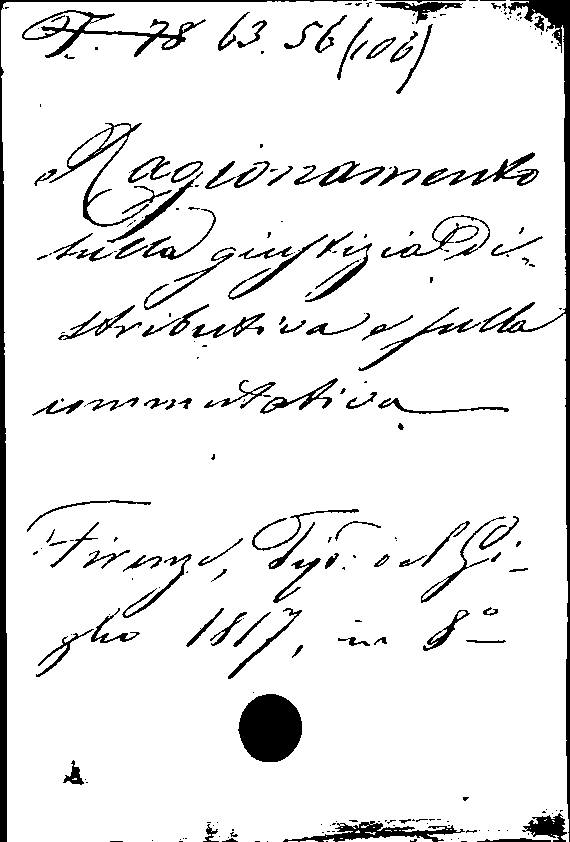 T. 78 63. 56 (106)
Ragionamento
sulla giustizia di-
stributiva e sulla
commutativa
Firenze, Tip: del Gi-
glio 1817, in 8º